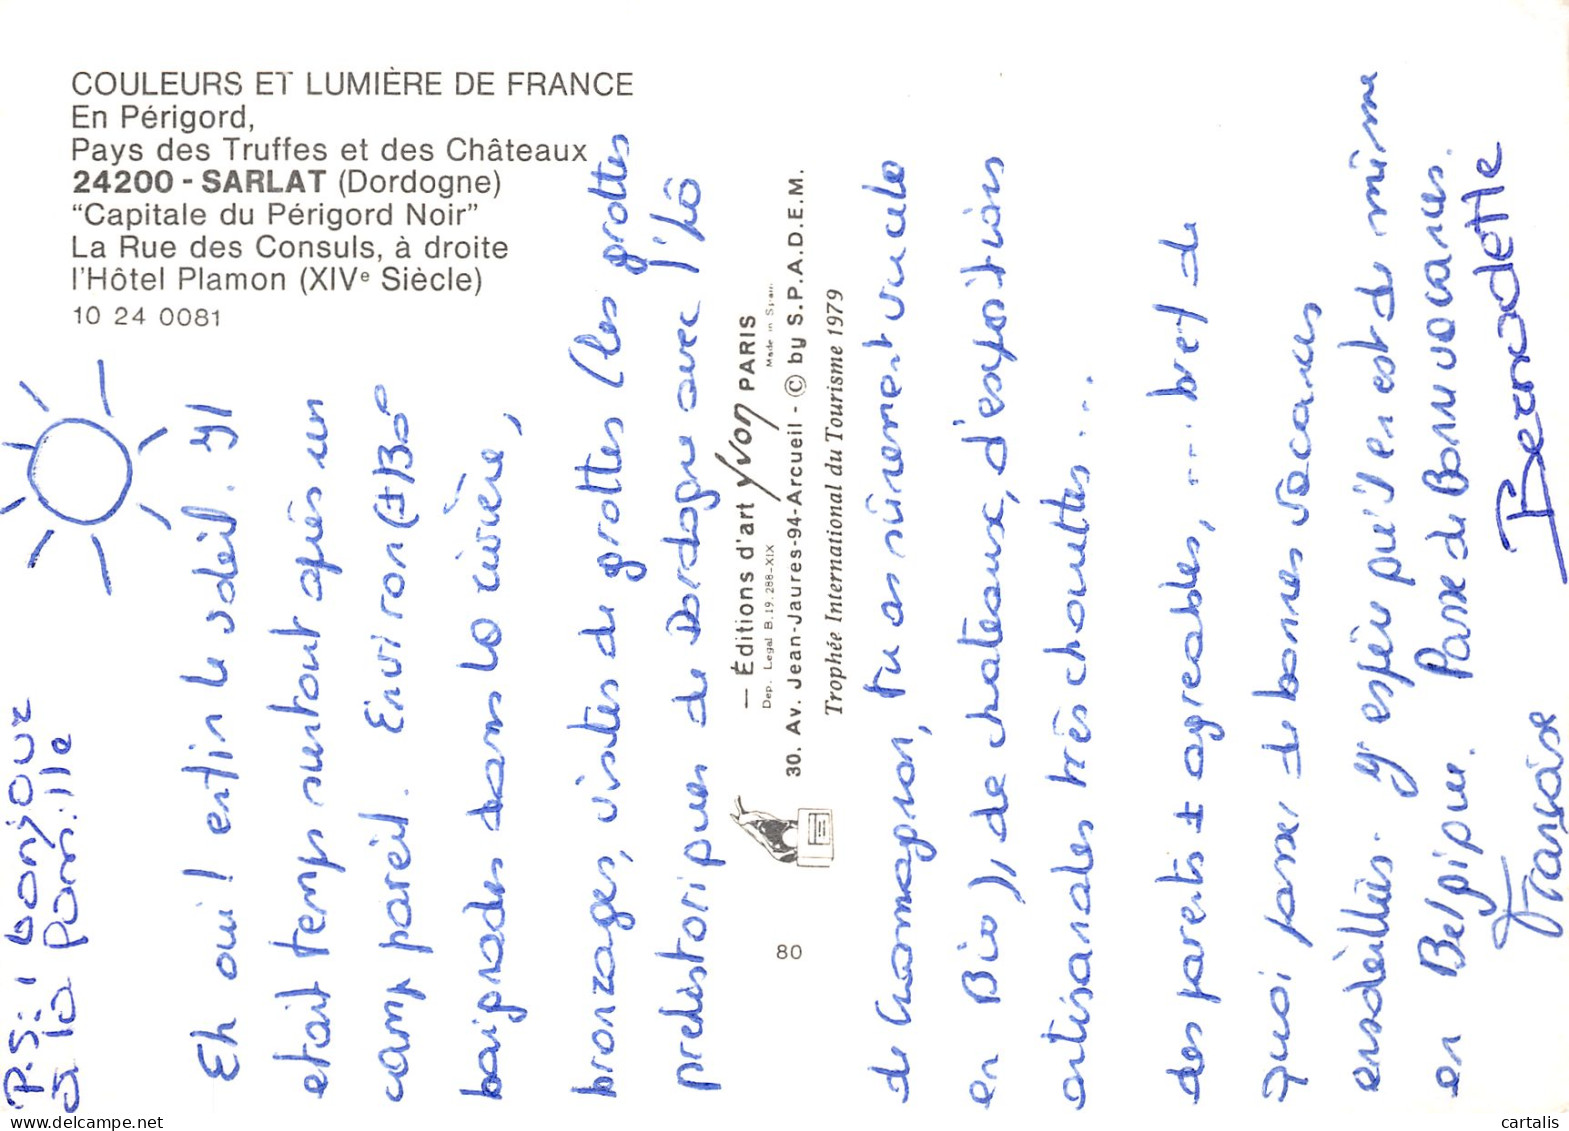 COULEURS ET LUMIÈRE DE FRANCE
En Périgord,
Pays des Truffes et des Châteaux
24200 - SARLAT (Dordogne)
"Capitale du Périgord Noir"
La Rue des Consuls, à droite
l'Hôtel Plamon (XIVe Siècle)
10 24 0081
P.S: bonjour
à la famille
Eh oui! enfin le soleil. Il
etait temps surtout après un
camp pareil. Environ (± 30°
baignades dans la rivière,
bronzages, visites de grottes (les grottes
prehistoriques de Dordogne avec l'hô
— Éditions d'art Yvon PARIS
Dep. Legal B.19.288-XIX
Made in Spain
30. Av. Jean-Jaures-94-Arcueil - © by S.P.A.D.E.M.
Trophée International du Tourisme 1979
80
de Cromagnon, tu as sûrement vu cela
en Bio), de chateaux, d'expositions
artisanales très chouettes...
des parents ± agreables, ... bref de
quoi passer de bonnes vacances
ensoleillées. J'espère qu'il en est de même
en Belgique. Passe de Bonnes vacances.
Françoise Bernadette
cartalis